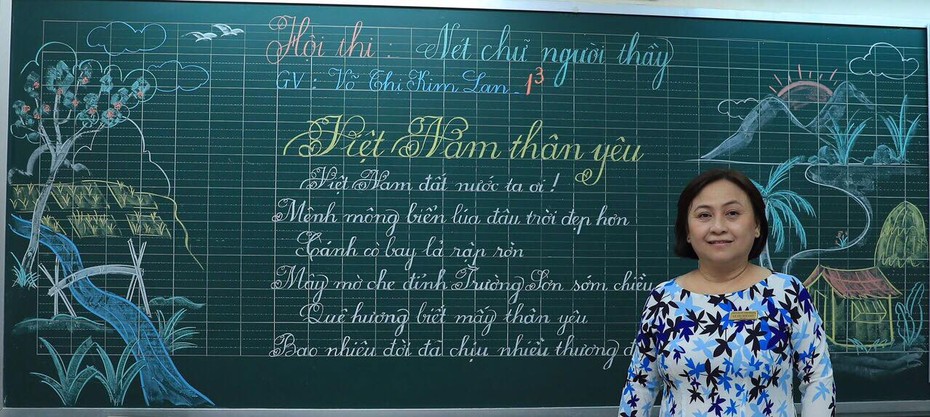 Hội thi : Nét chữ người thầy
GV : Võ Thị Kim Lan _ 1³
Việt Nam thân yêu
Việt Nam đất nước ta ơi !
Mênh mông biển lúa đâu trời đẹp hơn
Cánh cò bay lả rập rờn
Mây mờ che đỉnh Trường Sơn sớm chiều
Quê hương biết mấy thân yêu
Bao nhiêu đời đã chịu nhiều thương